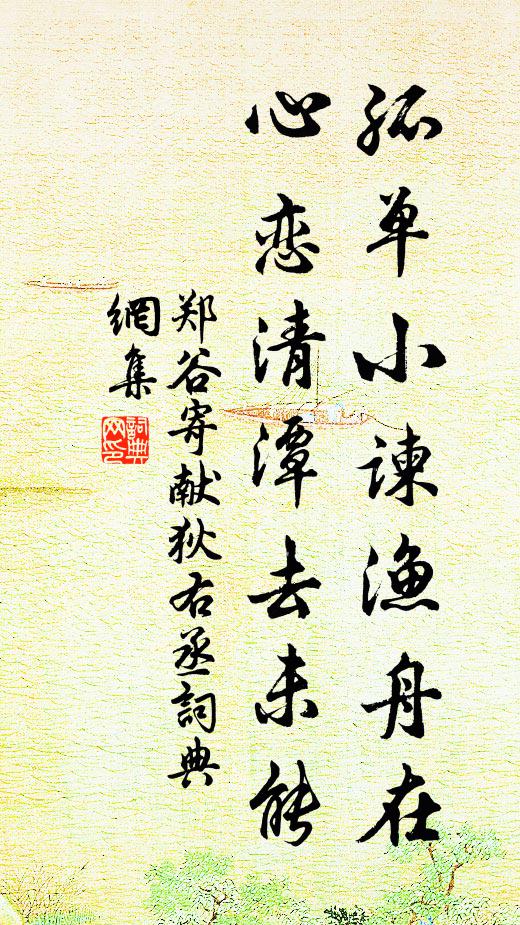 孤单小谏渔舟在
心恋清潭去未能
郑谷寄献狄右丞詞典
網集
詞典
网印